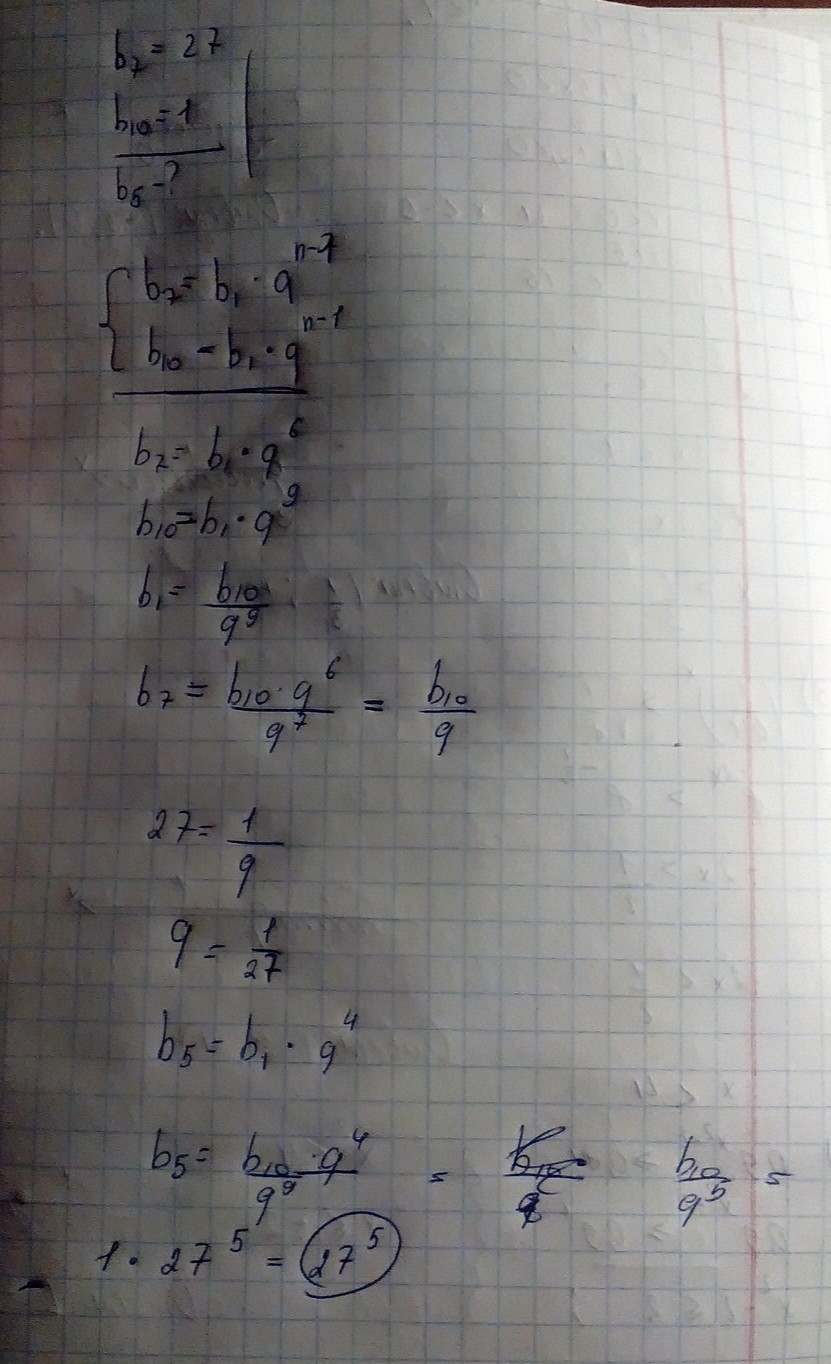 b₇ = 27
b₁₀ = 1
b₅ - ?
b₇ = b₁ · q^(n-7)
b₁₀ = b₁ · q^(n-1)
b₇ = b₁ · q⁶
b₁₀ = b₁ · q⁹
b₁ = b₁₀/q⁹
b₇ = b₁₀ · q⁶/q⁷ = b₁₀/q
27 = 1/q
q = 1/27
b₅ = b₁ · q⁴
b₅ = b₁₀ · q⁴/q⁹ = b₁₀/q⁵ =
1 · 27⁵ = 27⁵